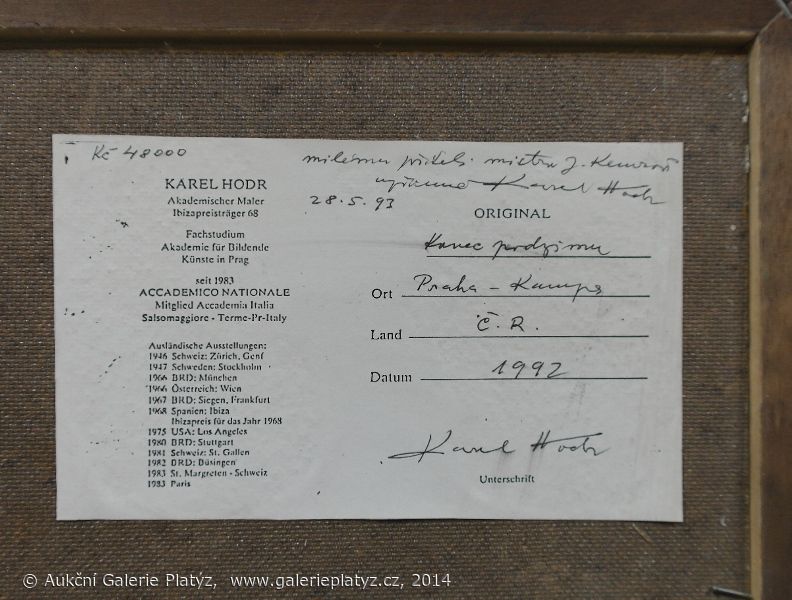 Kč 48000
milému příteli mistru J.
upřímně Karel Hodr
28.5.93
KAREL HODR
Akademischer Maler
Ibizapreisträger 68
Fachstudium
Akademie für Bildende
Künste in Prag
seit 1983
ACCADEMICO NATIONALE
Mitglied Accademia Italia
Salsomaggiore - Terme-Pr-Italy
Ausländische Ausstellungen:
1946 Schweiz: Zürich, Genf
1947 Schweden: Stockholm
1966 BRD: München
1966 Österreich: Wien
1967 BRD: Siegen, Frankfurt
1968 Spanien: Ibiza
Ibizapreis für das Jahr 1968
1975 USA: Los Angeles
1980 BRD: Stuttgart
1981 Schweiz: St. Gallen
1982 BRD: Büsingen
1983 St. Margreten - Schweiz
1983 Paris
ORIGINAL
Konec podzimu
Ort Praha - Kampa
Land Č.R.
Datum 1992
Karel Hodr
Unterschrift
© Aukční Galerie Platýz, www.galerieplatyz.cz, 2014